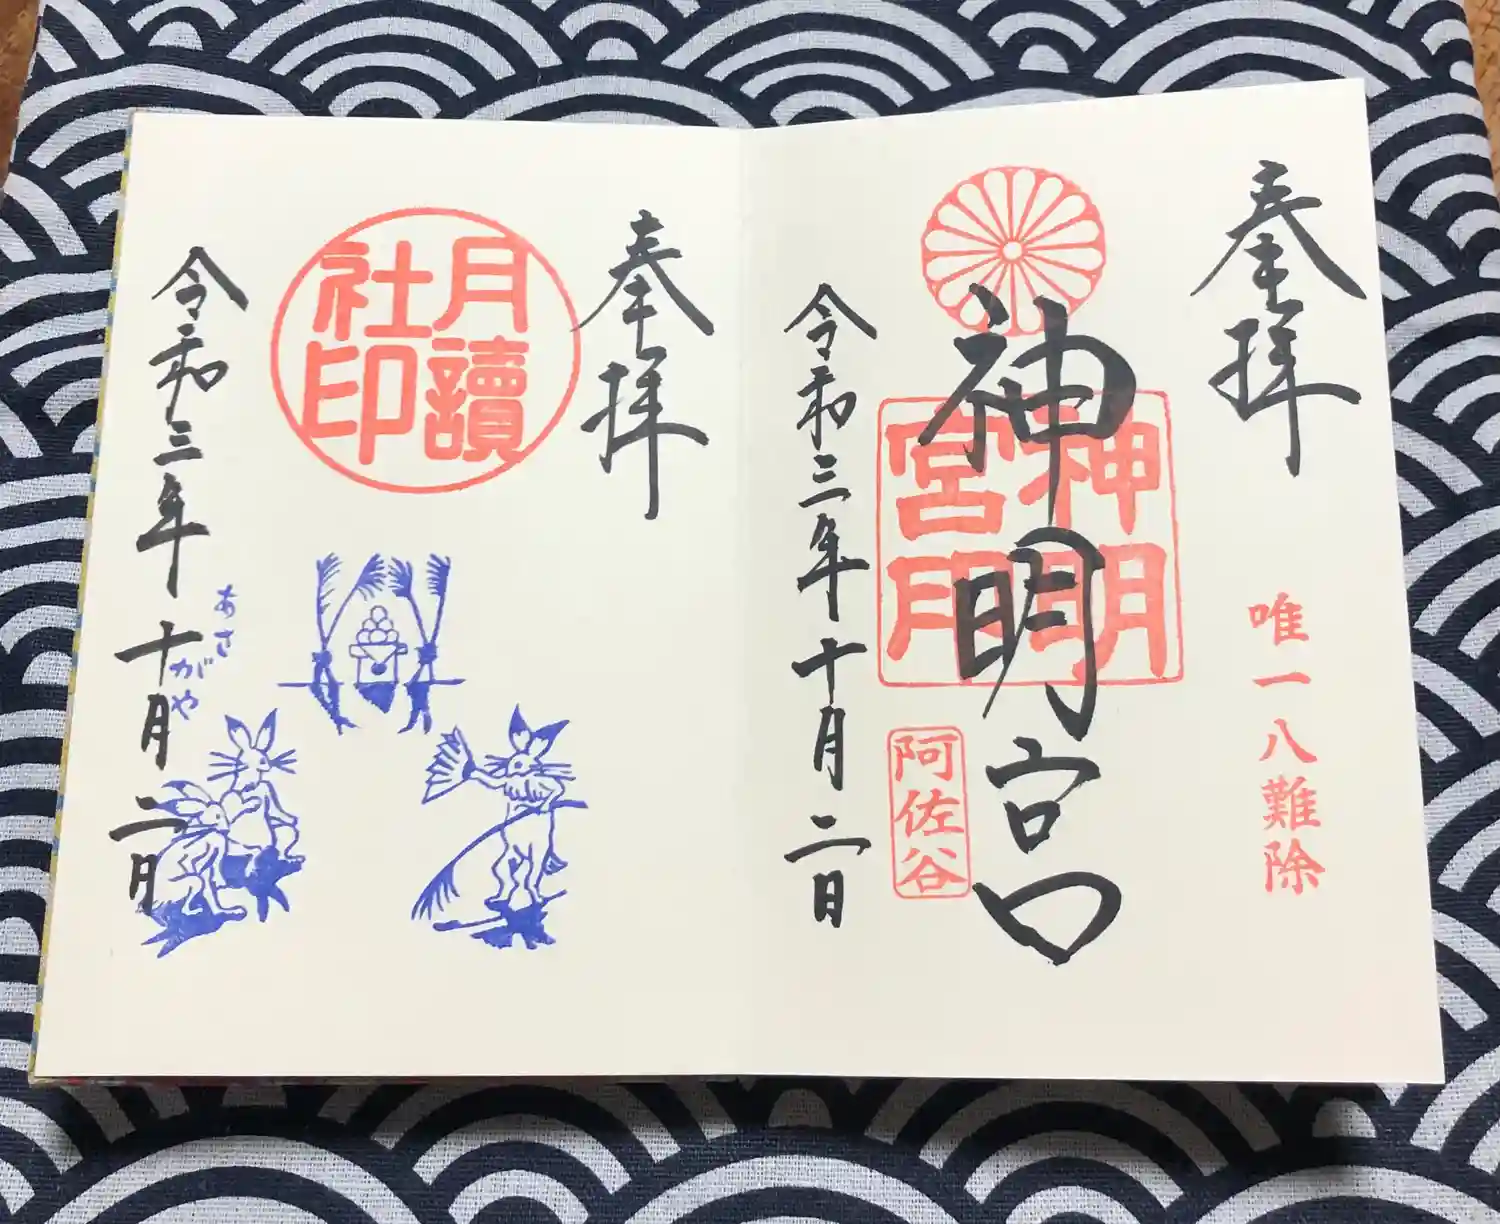 奉拝
唯一八難除
神明宮
神明宮印
阿佐谷
令和三年十月二日
奉拝
月讀社印
令和三年十月二日
あさがや